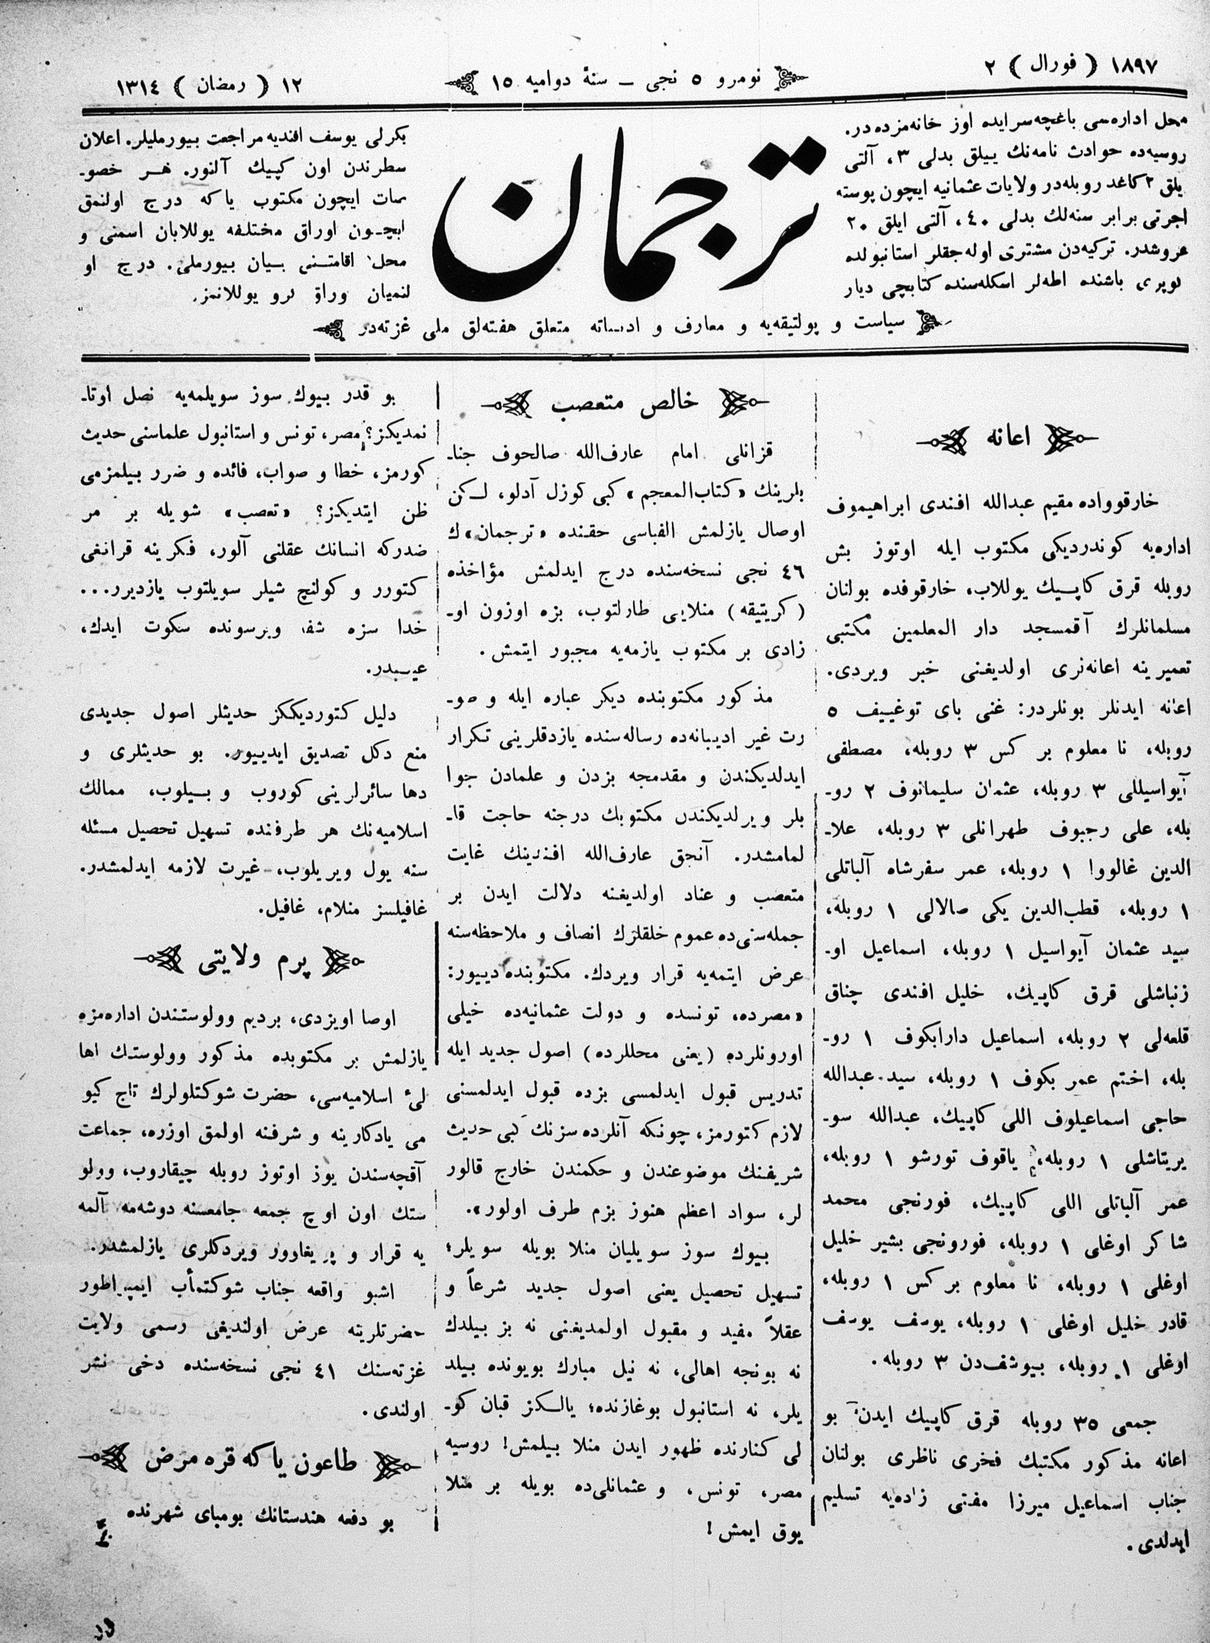 ١٨٩٧ ( فورال ) ٢
نومرو ٥ نجی ــ سنهٔ دوامیه ١٥
١٢ ( رمضان ) ١٣١٤
محل اداره‌سی باغچه‌سرایده اوز خانه‌مزده‌در.
روسیه‌ده حوادث نامه‌نك ییللق بدلی ٣، آلتی
یلق ٢ کاغد روبله‌در ولایات عثمانیه ایچون پوسته
اجرتی برابر سنه‌لك بدلی ٤٠، آلتی ایلق ٢٠
غروشدر. ترکیه‌دن مشتری اوله‌جقلر استانبولده
باشنده اطه‌لر اسکله‌سنده کتابچی دیار
ترجمان
بکرلی یوسف افندیه مراجعت بیورملیلر. اعلان
سطرندن اون کپیك آلنور. هر خصو-
صات ایچون مکتوب یاکه درج اولنمق
ایچون اوراق مختلفه یوللابان اسمنی و
محل اقامتنی بیان بیورملی. درج او
لنمیان وراق کرو یوللانمز.
سیاست و پولتیقه‌یه و معارف و ادبیاته متعلق هفته‌لق ملی غزته‌در
اعانه
خارقوواده مقیم عبدالله افندی ابراهیموف
اداره‌یه کوندردیکی مکتوب ایله اوتوز بش
روبله قرق کاپیك یوللاب، خارقوفده بولنان
مسلمانلرك آقمسجد دار المعلمین مکتبی
تعمیرینه اعانه‌نری اولدیغنی خبر ویردی.
اعانه ایدنلر بونلردر: غنی بای توغییف ٥
روبله، نا معلوم بر کس ٣ روبله، مصطفی
آیواسیللی ٣ روبله، عثمان سلیمانوف ٢ رو-
بله، علی رجبوف طهرانلی ٣ روبله، علا-
الدین غالووا ١ روبله، عمر سفرشاه آلباتلی
١ روبله، قطب‌الدین یکی صالالی ١ روبله،
سید عثمان آیواسیل ١ روبله، اسماعیل او-
زنباشلی قرق کاپیك، خلیل افندی چناق
قلعه‌لی ٢ روبله، اسماعیل دارابکوف ١ رو-
بله، اختم عمر بکوف ١ روبله، سید عبدالله
حاجی اسماعیلوف اللی کاپیك، عبدالله سو-
یریتاشلی ١ روبله، یاقوف تورشو ١ روبله،
عمر آلباتلی اللی کاپیك، فورنجی محمد
شاکر اوغلی ١ روبله، فورونجی بشیر خلیل
اوغلی ١ روبله، نا معلوم بر کس ١ روبله،
قادر خلیل اوغلی ١ روبله، یوسف یوسف
اوغلی ١ روبله، بیوشفدن ٣ روبله.
جمعی ٣٥ روبله قرق کاپیك ایدن بو
اعانه مذکور مکتبك فخری ناظری بولنان
جناب اسماعیل میرزا مفتی زاده‌یه تسلیم
ایدلدی.
خالص متعصب
قزانلی امام عارف‌الله صالحوف جنا-
بلرینك «کتاب‌المعجم» کبی کوزل آدلو، لکن
اوصال یازلمش الفباسی حقنده «ترجمان»ك
٤٦ نجی نسخه‌سنده درج ایدلمش مؤاخذه
(کریتیقه) منلایی طارلتوب، بزه اوزون او-
زادی بر مکتوب یازمه‌یه مجبور ایتمش.
مذکور مکتوبنده دیکر عباره ایله و صو-
رت غیر ادیبانه‌ده رساله‌سنده یازدقلرینی تکرار
ایدلدیکندن و مقدمجه بزدن و علمادن جوا
بلر ویرلدیکندن مکتوبك درجنه حاجت قا-
لمامشدر. آنجق عارف‌الله افندینك غایت
متعصب و عناد اولدیغنه دلالت ایدن بر
جمله‌سنی‌ده عموم خلقلرك انصاف و ملاحظه‌سنه
عرض ایتمه‌یه قرار ویردك. مکتوبنده دییور:
«مصرده، تونسده و دولت عثمانیه‌ده خیلی
اورونلرده (یعنی محللرده) اصول جدید ایله
تدریس قبول ایدلمسی بزده قبول ایدلمسنی
لازم کتورمز، چونکه آنلرده سزنك کبی حدیث
شریفنك موضوعندن و حکمندن خارج قالور
لر، سواد اعظم هنوز بزم طرف اولور».
بیوك سوز سویلیان منلا بویله سویلر؛
تسهیل تحصیل یعنی اصول جدید شرعاً و
عقلاً مفید و مقبول اولمدیغنی نه بز بیلدك
نه بونجه اهالی، نه نیل مبارك بویونده بیلد
یلر، نه استانبول بوغازنده؛ یالکز قبان کو-
لی کنارنده ظهور ایدن منلا بیلمش! روسیه
مصر، تونس، و عثمانلی‌ده بویله بر منلا
یوق ایمش!
بو قدر بیوك سوز سویلمه‌یه نصل اوتا-
نمدیکز؟ مصر، تونس و استانبول علماسنی حدیث
کورمز، خطا و صواب، فائده و ضرر بیلمزمی
ظن ایتدیکز؟ «تعصب» شویله بر مر
ضدرکه انسانك عقلنی آلور، فکرینه قرانغی
کتورر و کولنچ شیلر سویلتوب یازدیرر...
خدا سزه شفا ویرسونده سکوت ایدك،
عیبدر.
دلیل کتوردیککز حدیثلر اصول جدیدی
منع دکل تصدیق ایدییور. بو حدیثلری و
دها سائرلرینی کوروب و بیلوب، ممالك
اسلامیه‌نك هر طرفنده تسهیل تحصیل مسئله
سنه یول ویریلوب، غیرت لازمه ایدلمشدر.
غافیلسز منلام، غافیل.
پرم ولایتی
اوصا اویزدی، بردیم وولوستندن اداره‌مزه
یازلمش بر مکتوبده مذکور وولوستك اها
لیٔ اسلامیه‌سی، حضرت شوکتلولرك تاج کیو
می یادکارینه و شرفنه اولمق اوزره، جماعت
آقچه‌سندن یوز اوتوز روبله چیقاروب، وولو
ستك اون اوچ جمعه جامعسنه دوشه‌مه آلمه
یه قرار و پریغاوور ویردکلری یازلمشدر.
اشبو واقعه جناب شوکتمأب ایمپراطور
حضرتلرینه عرض اولندیغی رسمی ولایت
غزته‌سنك ٤١ نجی نسخه‌سنده دخی نشر
اولندی.
طاعون یاکه قره مرض
بو دفعه هندستانك بومبای شهرنده